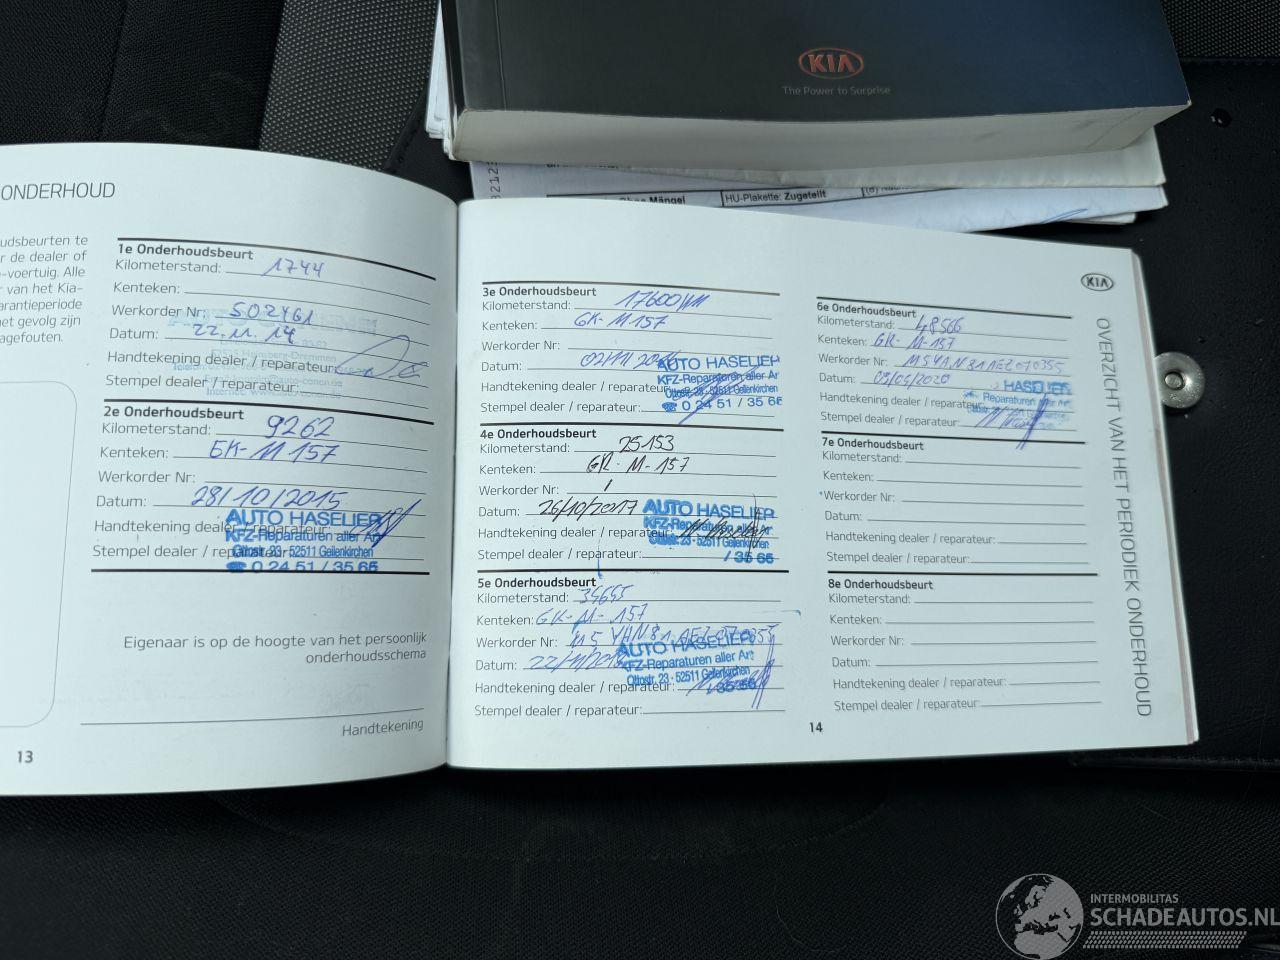 KIA
The Power to Surprise
Ohne Mängel
HU-Plakette: Zugeteilt
ONDERHOUD
udsbeurten te
r de dealer of
-voertuig. Alle
r van het Kia-
arantieperiode
et gevolg zijn
agefouten.
1e Onderhoudsbeurt
Kilometerstand: 1744
Kenteken:
Werkorder Nr: 502461
Datum: 22.11.14
Handtekening dealer / reparateur:
Stempel dealer / reparateur:
2e Onderhoudsbeurt
Kilometerstand: 9262
Kenteken: GK-M 157
Werkorder Nr:
Datum: 28/10/2015
AUTO HASELIER
Handtekening dealer / reparateur:
KFZ-Reparaturen aller Art
Stempel dealer / reparateur:
Ottostr. 23 · 52511 Geilenkirchen
☎ 0 24 51 / 35 65
Eigenaar is op de hoogte van het persoonlijk
onderhoudsschema
Handtekening
13
3e Onderhoudsbeurt
Kilometerstand: 17600 KM
Kenteken: GK-M 157
Werkorder Nr:
Datum: 02/11/
AUTO HASELIER
KFZ-Reparaturen aller Ar
Handtekening dealer / reparateur:
Ottostr. 23 · 52511 Geilenkirchen
Stempel dealer / reparateur:
☎ 0 24 51 / 35 65
4e Onderhoudsbeurt
Kilometerstand: 25153
Kenteken: GK-M-157
Werkorder Nr: /
Datum: 26/10/2017
AUTO HASELIER
KFZ-Reparaturen aller Ar
Handtekening dealer / reparateur:
Ottostr. 23 · 52511 Geilenkirchen
Stempel dealer / reparateur:
/ 35 65
5e Onderhoudsbeurt
Kilometerstand: 34645
Kenteken: GK-M-157
Werkorder Nr:
AUTO HASELIER
Datum: 22/11/
KFZ-Reparaturen aller Art
Ottostr. 23 · 52511 Geilenkirchen
Handtekening dealer / reparateur:
35 65
Stempel dealer / reparateur:
14
KIA
OVERZICHT VAN HET PERIODIEK ONDERHOUD
6e Onderhoudsbeurt
Kilometerstand: 48566
Kenteken: GK-M-157
Werkorder Nr:
Datum: 03/04/2020
HASELIER
Handtekening dealer / reparateur:
Reparaturen aller Art
Stempel dealer / reparateur:
7e Onderhoudsbeurt
Kilometerstand:
Kenteken:
Werkorder Nr:
Datum:
Handtekening dealer / reparateur:
Stempel dealer / reparateur:
8e Onderhoudsbeurt
Kilometerstand:
Kenteken:
Werkorder Nr:
Datum:
Handtekening dealer / reparateur:
Stempel dealer / reparateur:
INTERMOBILITAS
SCHADEAUTOS.NL